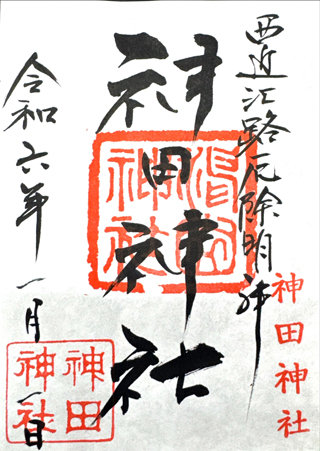 西近江路厄除明神
神田神社
神田神社
神田神社
神田神社
令和六年一月一日